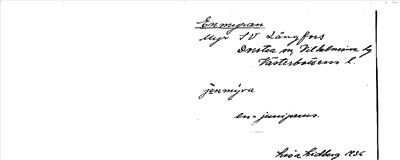 Enmyran
Myr SV Långfors
Dorotea sn, Vilhelmina tg
Västerbottens l.
jenmýra
en = juniperus.
Lisa Lidberg 1936